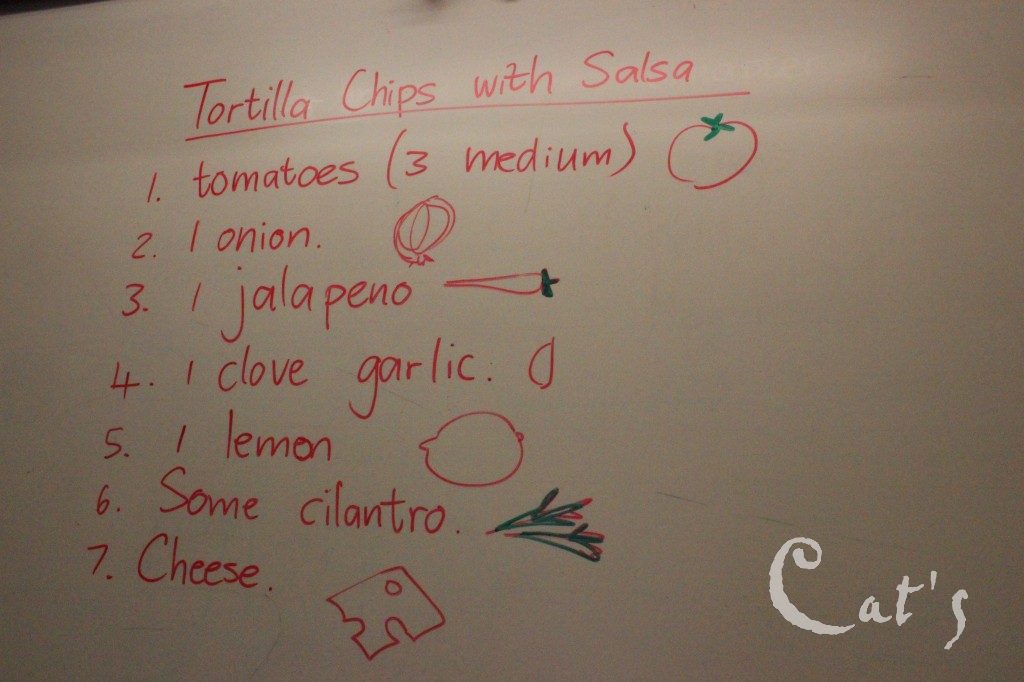 Tortilla Chips with Salsa
1. tomatoes (3 medium)
2. 1 onion.
3. 1 jalapeno
4. 1 clove garlic.
5. 1 lemon
6. Some cilantro.
7. Cheese.
Cat's